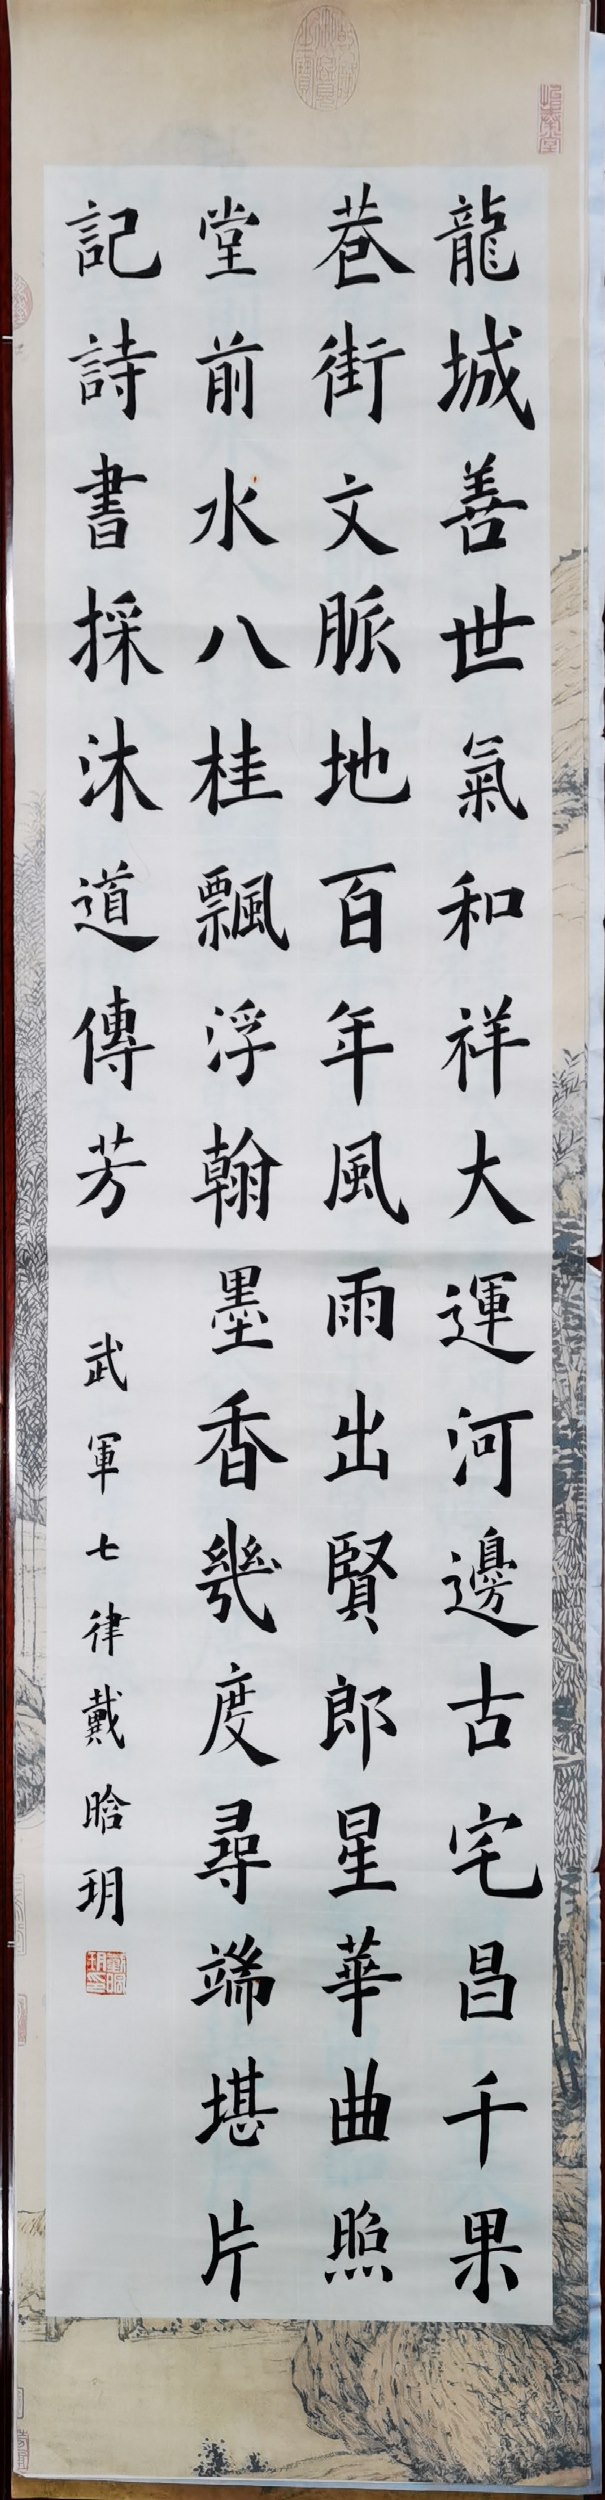 龍城善世氣和祥大運河邊古宅昌千果
巷街文脈地百年風雨出賢郎星華曲照
堂前水八桂飄浮翰墨香幾度尋端堪片
記詩書採沐道傳芳
武軍七律戴晗玥